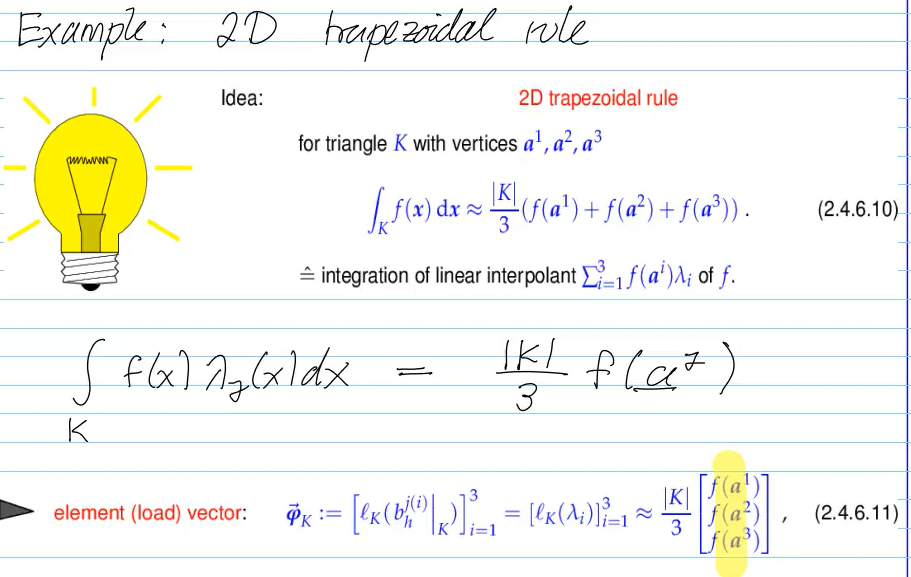 Example: 2D trapezoidal rule
Idea: 2D trapezoidal rule
for triangle K with vertices a¹, a², a³
∫_K f(x) dx ≈ |K|/3 (f(a¹) + f(a²) + f(a³)) . (2.4.6.10)
≙ integration of linear interpolant ∑³ᵢ₌₁ f(aⁱ)λᵢ of f.
∫_K f(x) λ_j(x) dx = |K|/3 f(a^j)
element (load) vector: φ⃗_K := [ℓ_K(b_h^{j(i)}|_K)]³ᵢ₌₁ = [ℓ_K(λᵢ)]³ᵢ₌₁ ≈ |K|/3 [f(a¹) f(a²) f(a³)] , (2.4.6.11)